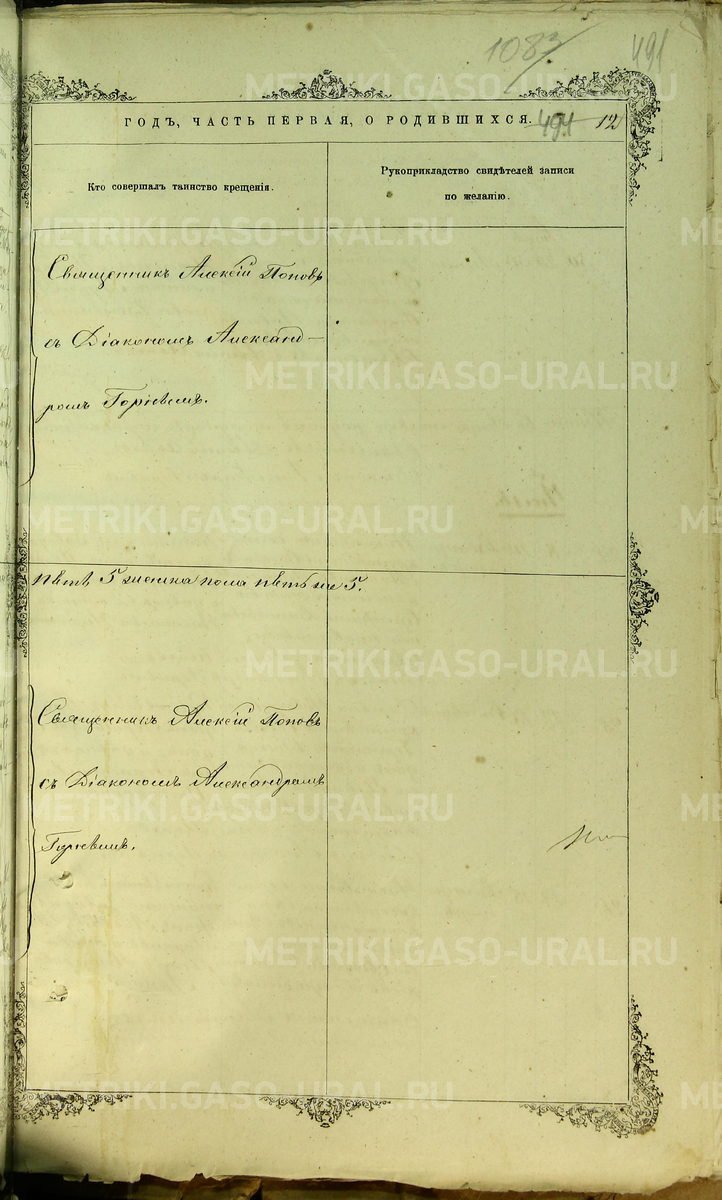 1083
491
ГОДЪ, ЧАСТЬ ПЕРВАЯ, О РОДИВШИХСЯ. 491 12
Кто совершалъ таинство крещенія.
Рукоприкладство свидѣтелей записи
по желанію.
Священникъ Алексій Поповъ
съ Діакономъ Александ-
ромъ
пять 5 женска пола пять 5.
Священникъ Алексій Поповъ
съ Діакономъ Александромъ
METRIKI.GASO-URAL.RU